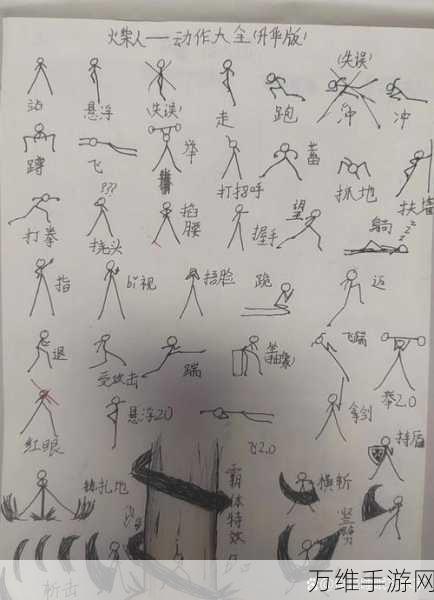 火柴人——动作大全(升华版)
(失误)
站 悬浮 (失误) 走 跑 冲 冲
蹲 飞 举 打招呼 蓄 抓地 扶墙
???
打拳 挠头 掐腰 握手 望 躺 zzz
指 bi视 捂脸 跪 迈
退 受攻击 踹 坐 飞踹 举2.0
红眼 悬浮2.0 飞2.0 拿剑 持盾
扎地 霸体特效 横斩 竖劈
斩击
万维手游网